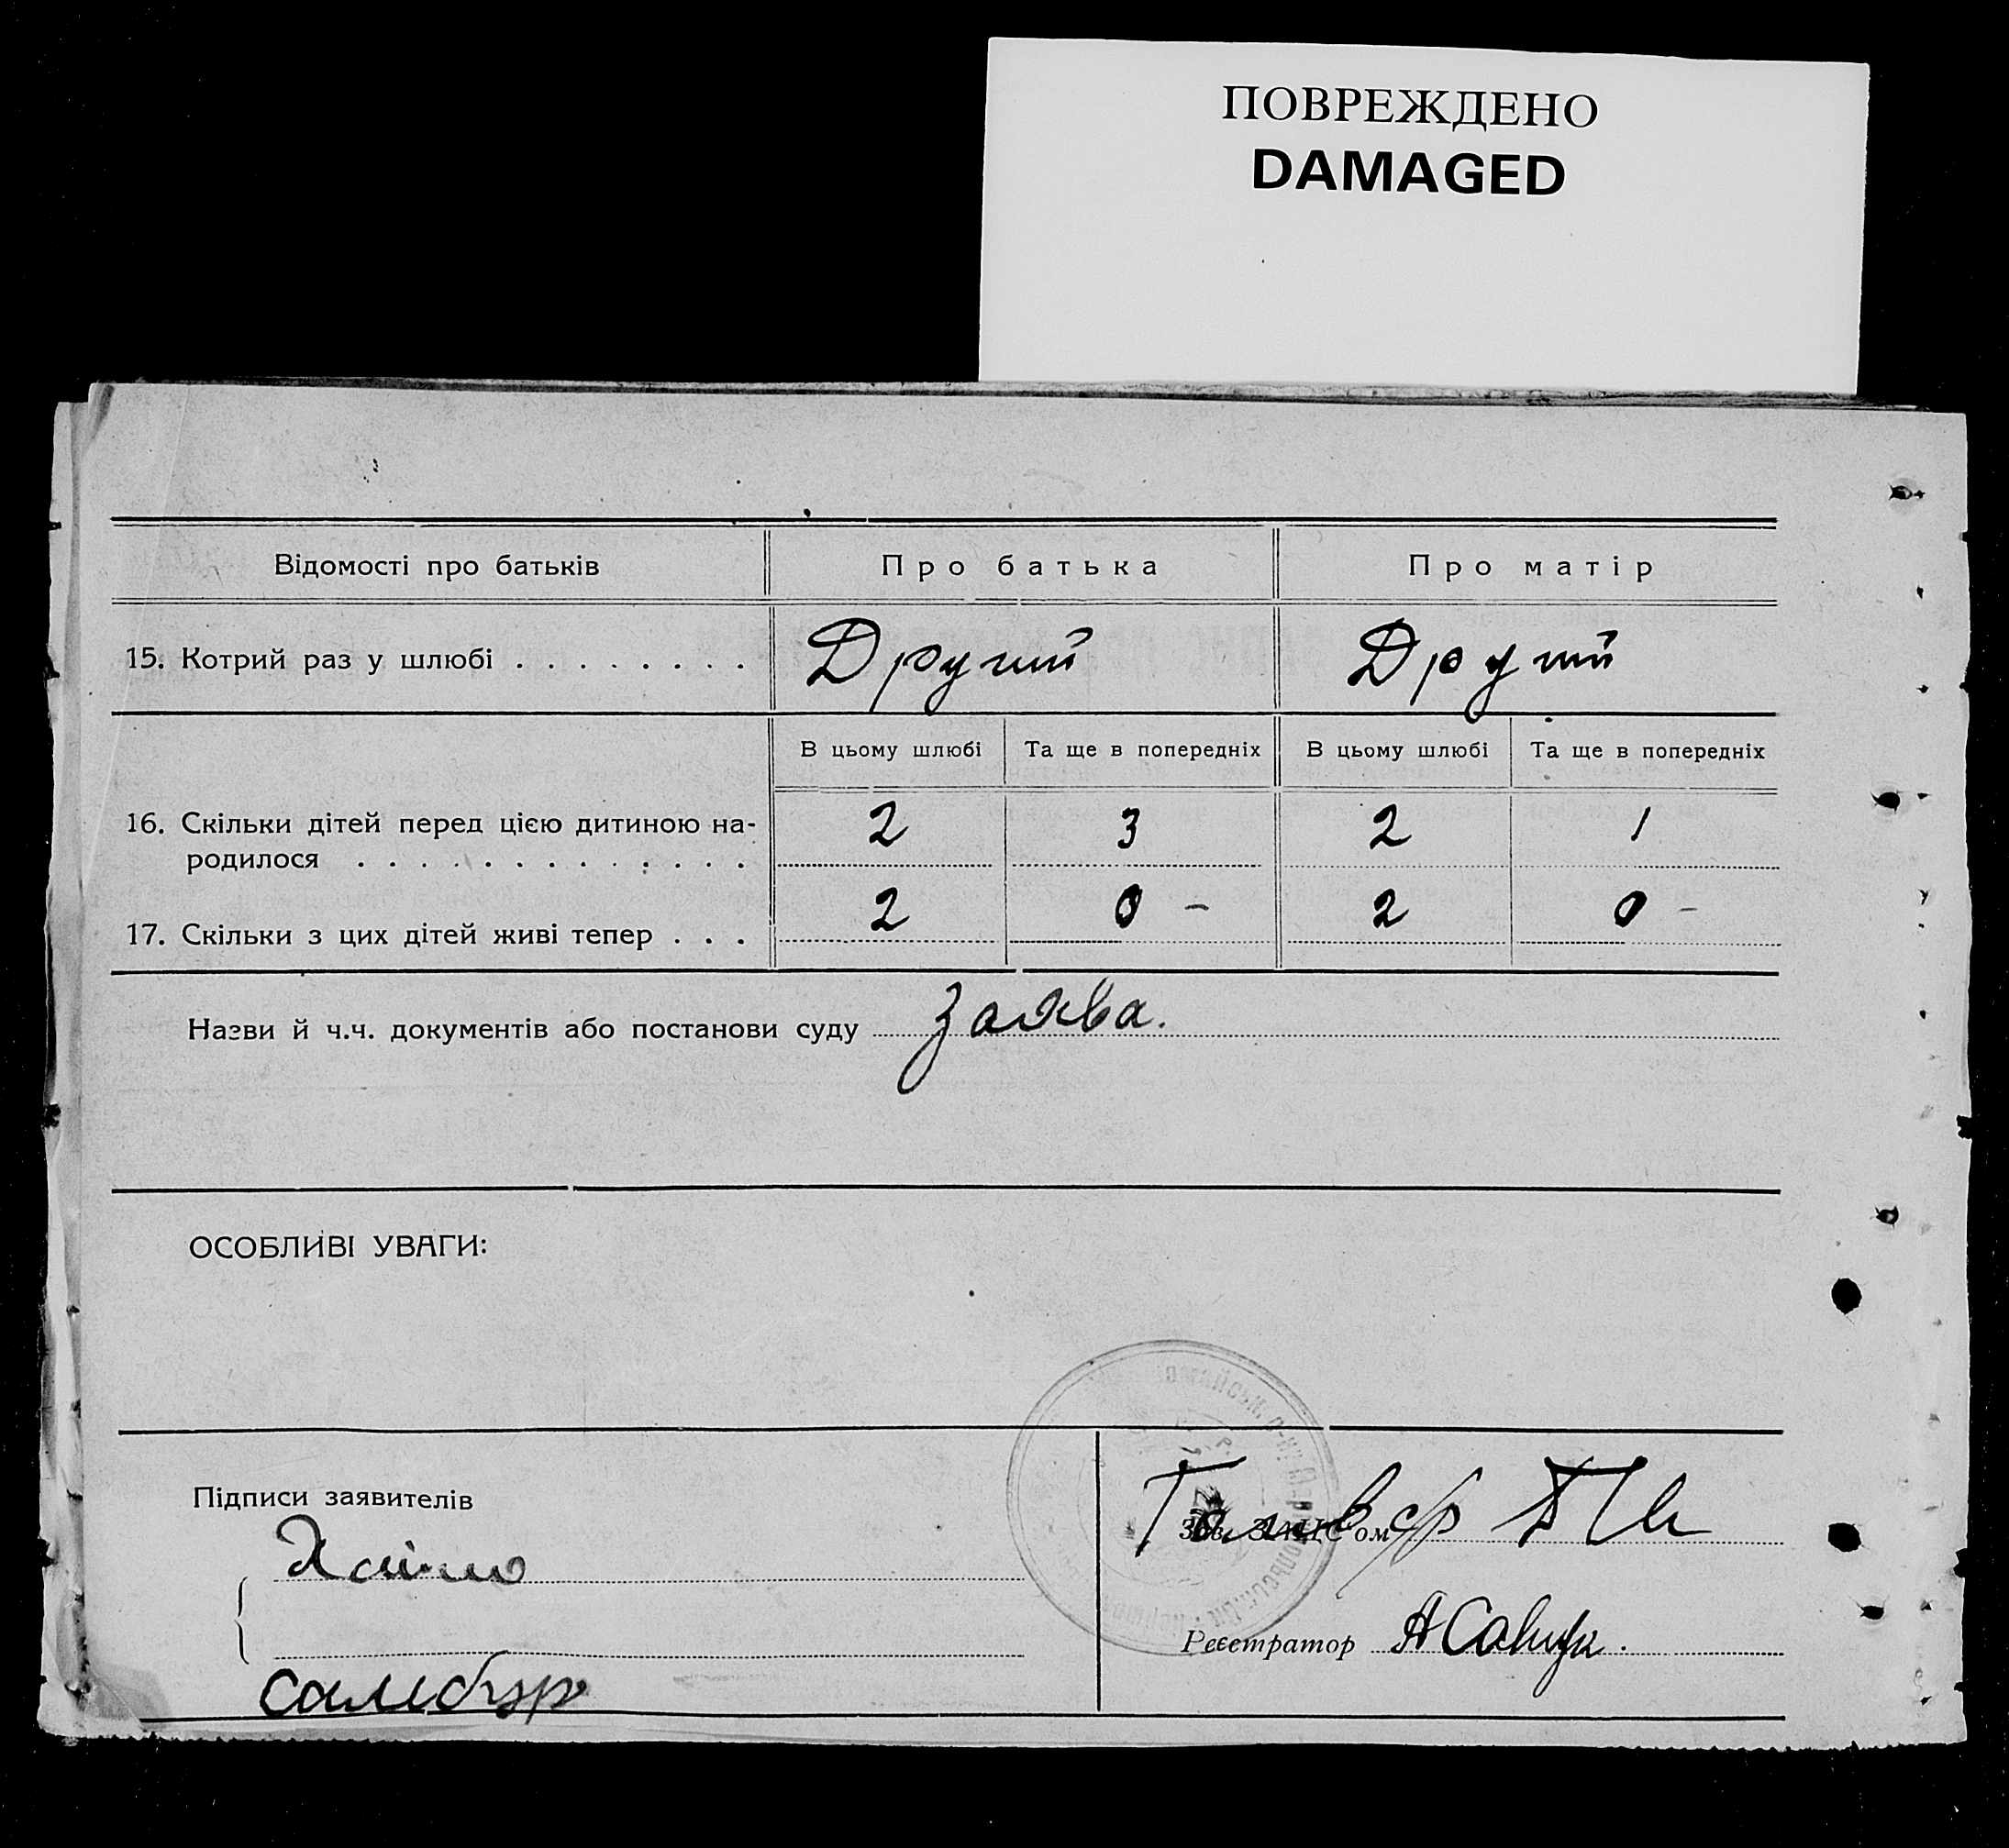 ПОВРЕЖДЕНО
DAMAGED
Відомості про батьків Про батька Про матір
15. Котрий раз у шлюбі . . . . . . . . Другий Другий
В цьому шлюбі Та ще в попередніх В цьому шлюбі Та ще в попередніх
16. Скільки дітей перед цією дитиною на- 2 3 2 1
родилося . . . . . . . . . . . . . .
17. Скільки з цих дітей живі тепер . . . 2 0 – 2 0 –
Назви й ч.ч. документів або постанови суду заява.
ОСОБЛИВІ УВАГИ:
Підписи заявителів
Зав. ЗАГСом
Реєстратор
самбур